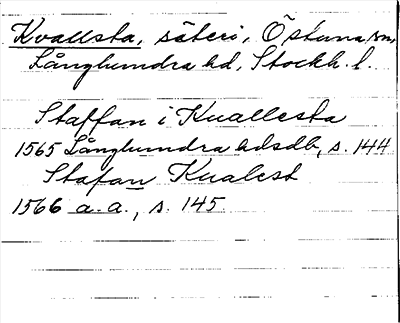 Kvallsta, säteri, Östuna sn,
Långhundra hd, Stockh. l.
Staffan i Kuallesta
1565 Långhundra hdsdb, s. 144
Stafan Kualest
1566 a. a., s. 145